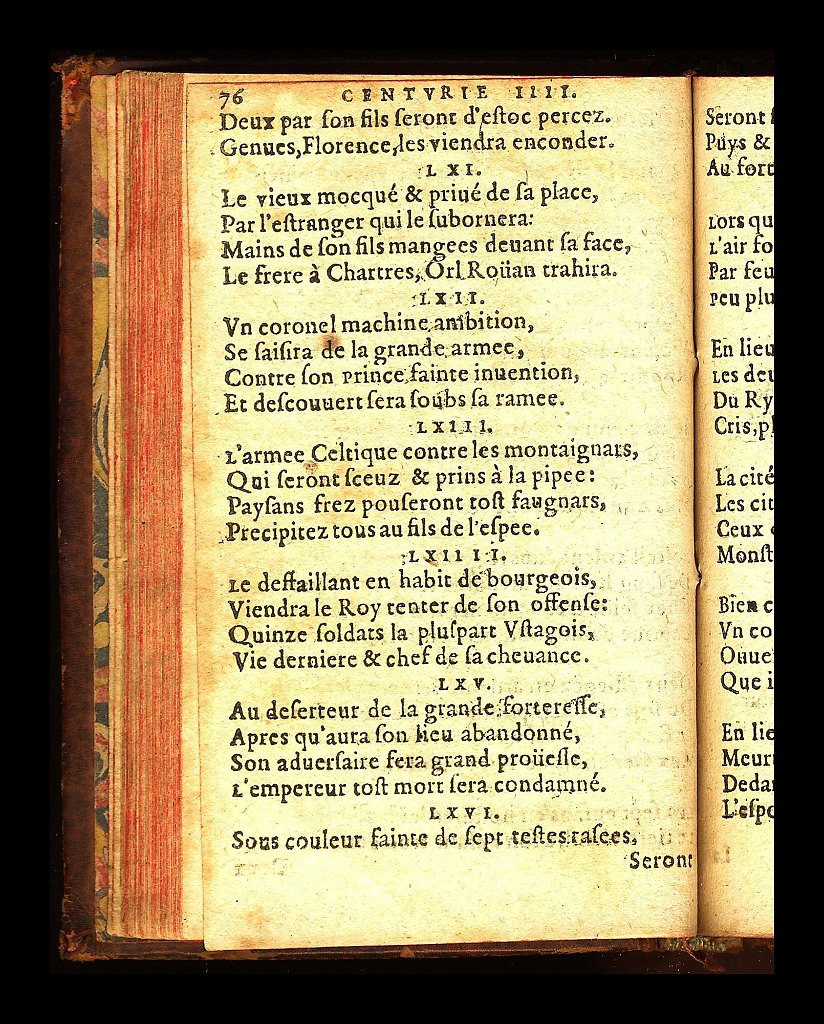 76 CENTVRIE IIII.
Deux par ſon fils ſeront d'eſtoc percez.
Genues, Florence, les viendra enconder.
LXI.
Le vieux mocqué & priué de ſa place,
Par l'eſtranger qui le ſubornera:
Mains de ſon fils mangees deuant ſa face,
Le frere à Chartres, Orl Roüan trahira.
LXII.
Vn coronel machine ambition,
Se ſaiſira de la grande armee,
Contre ſon Prince fainte inuention,
Et deſcouuert ſera ſoubs ſa ramee.
LXIII.
L'armee Celtique contre les montaignars,
Qui ſeront ſceuz & prins à la pipee:
Payſans frez pouſeront toſt faugnars,
Precipitez tous au fils de l'eſpee.
LXIIII.
Le deffaillant en habit de bourgeois,
Viendra le Roy tenter de ſon offenſe:
Quinze ſoldats la pluſpart Vſtagois,
Vie derniere & chef de ſa cheuance.
LXV.
Au deſerteur de la grande fortereſſe,
Apres qu'aura ſon lieu abandonné,
Son aduerſaire fera grand proüeſſe,
L'empereur toſt mort ſera condamné.
LXVI.
Sous couleur fainte de ſept teſtes raſees,
Seront
Seront
Puys &
Au fort
Lors qu
L'air fo
Par feu
Peu plu
En lieu
Les deu
Du Ry
Cris, pl
La cité
Les cit
Ceux
Monſt
Bien c
Vn co
Ouue
Que i
En lie
Meur
Deda
L'eſpo